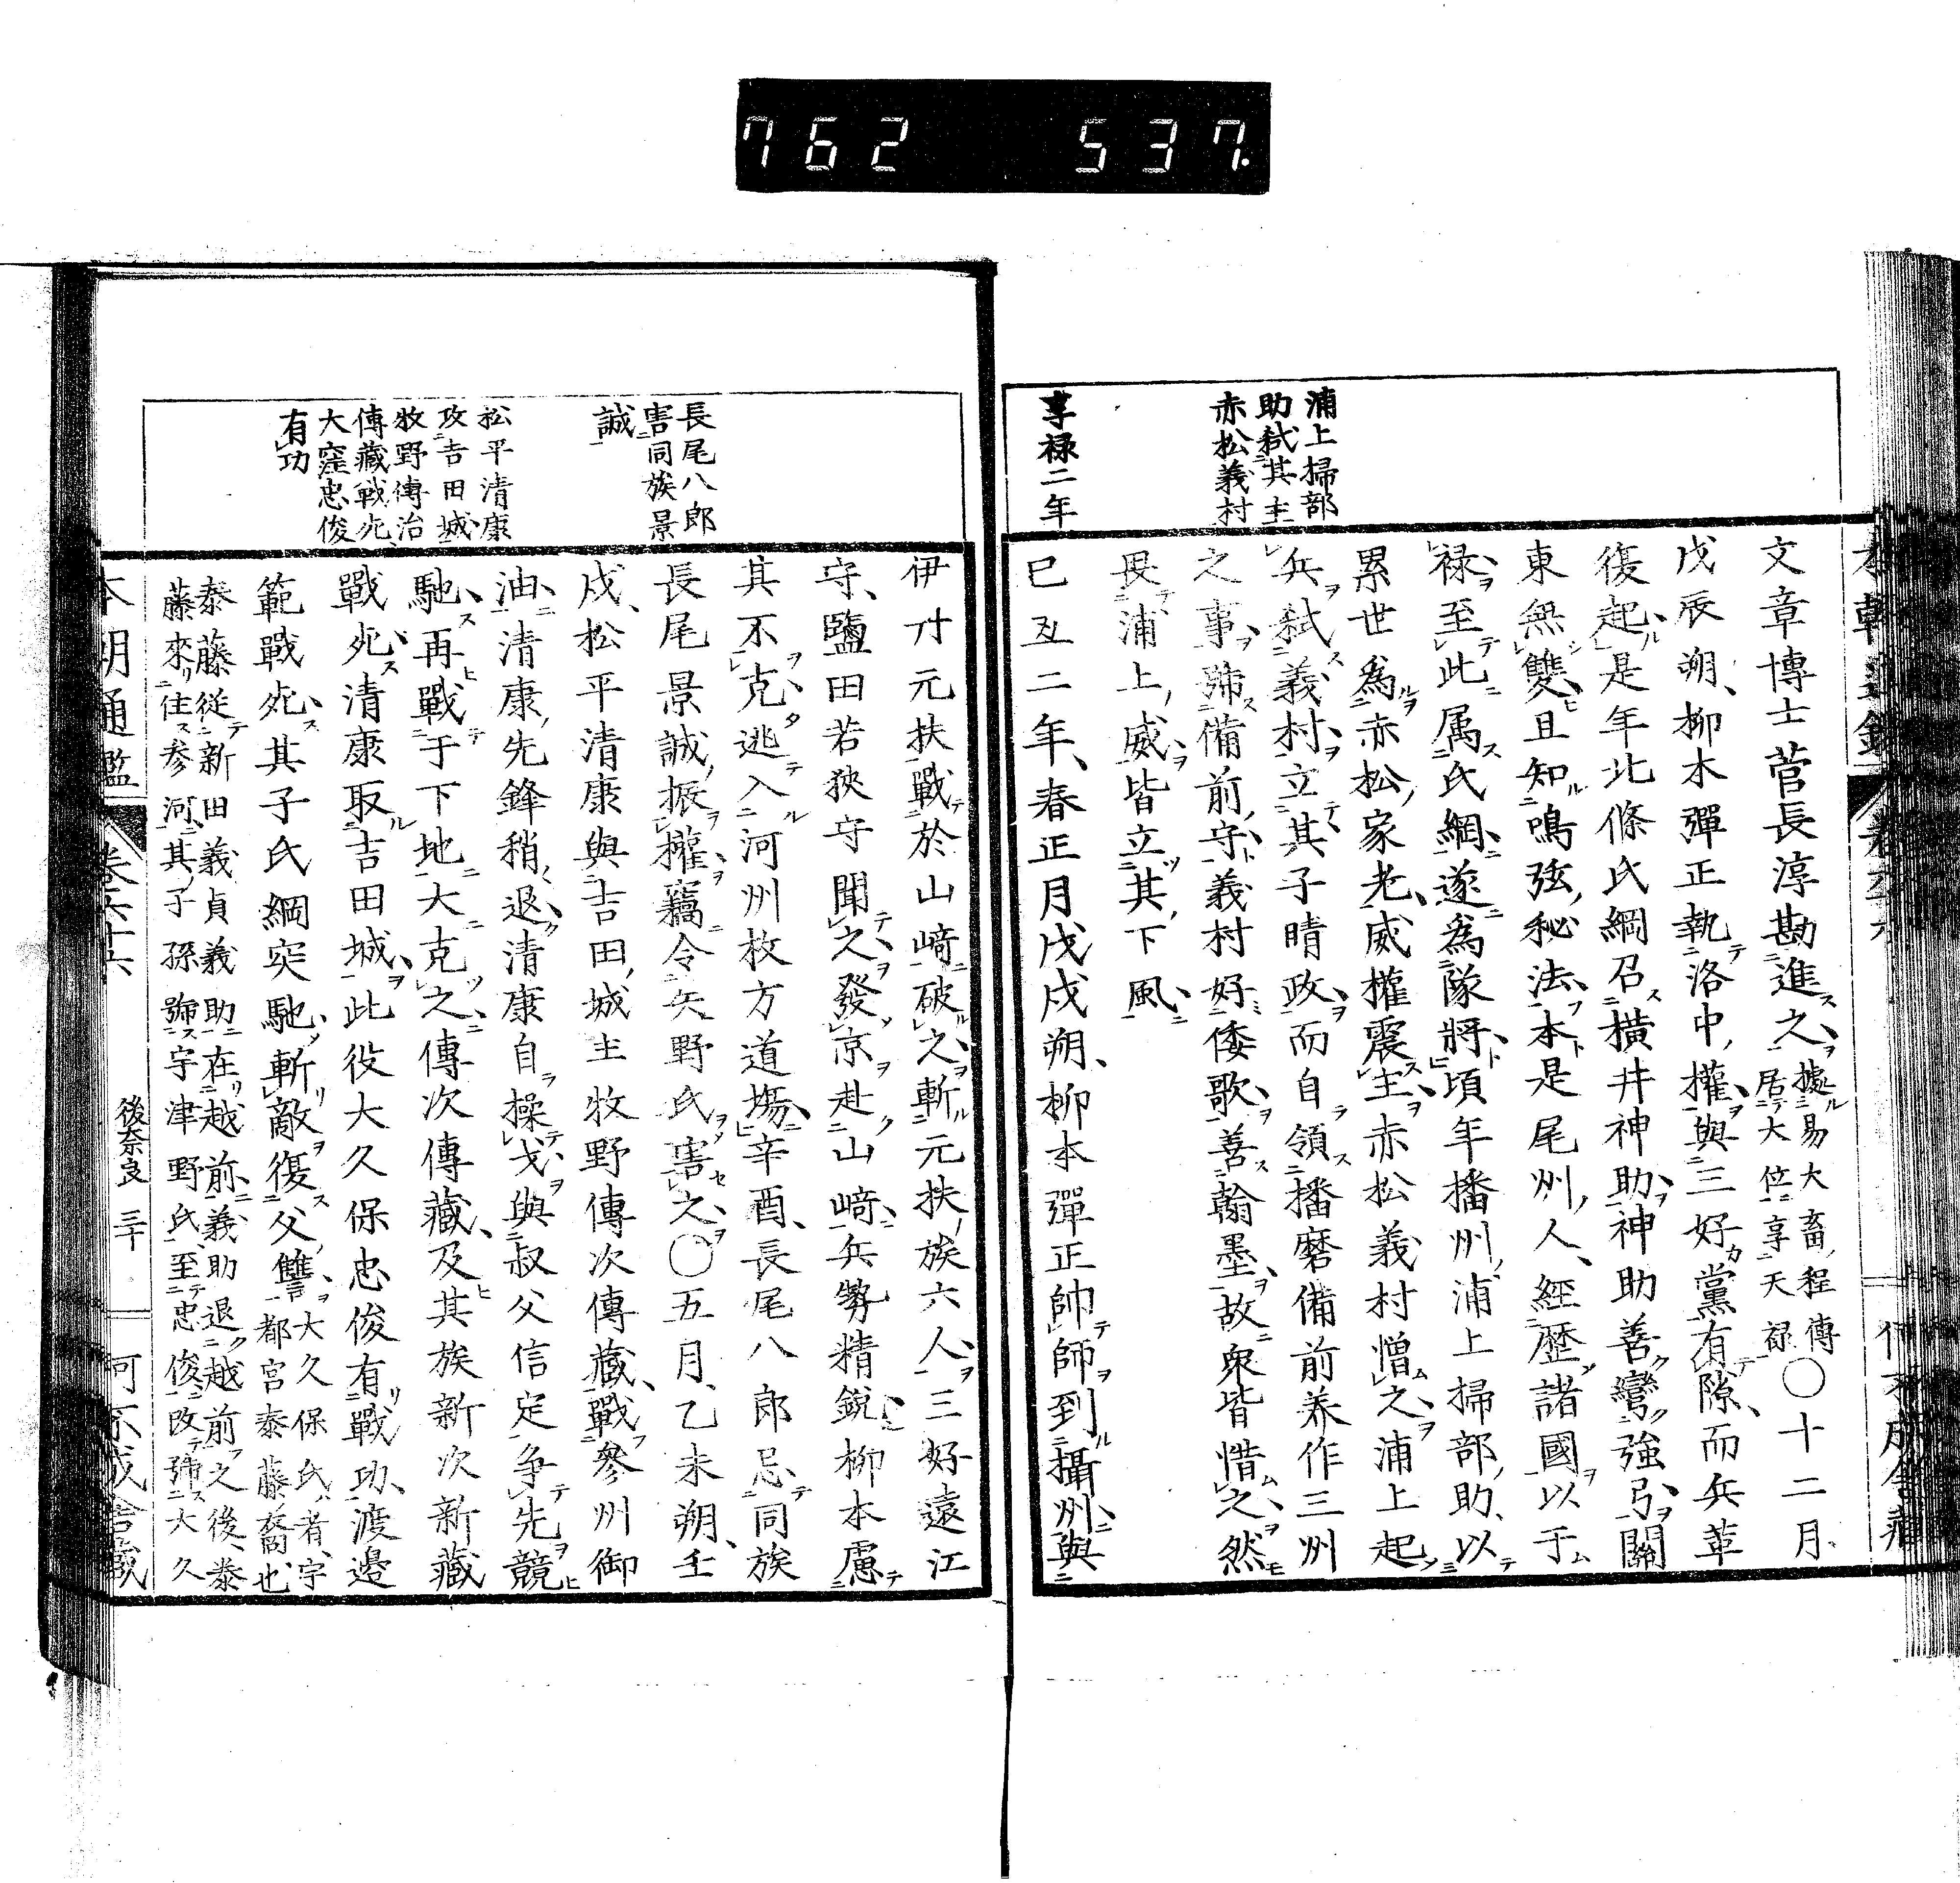 762 537.
浦上掃部
助弑其主
赤松義村
享禄二年
文章博士菅長淳勘進之據易大畜程傳
居大位享天禄〇十二月
戊辰朔柳本彈正執洛中權與三好黨有隙而兵革
復起是年北條氏綱召横井神助神助善彎強弓關
東無雙且知鳴弦秘法本是尾州人經歴諸國以于
禄至此属氏綱遂為隊將頃年播州浦上掃部助以
累世為赤松家老威權震主赤松義村憎之浦上起
兵弑義村立其子晴政而自領播磨備前美作三州
之事號備前守義村好倭歌善翰墨故衆皆惜之然
畏浦上威皆立其下風
己丑二年春正月戊戌朔柳本彈正帥師到攝州與
長尾八郎
害同族景
誠
松平清康
攻吉田城
牧野傳治
傳藏戰死
大窪忠俊
有功
伊丹元扶戰於山﨑破之斬元扶族六人三好遠江
守鹽田若狹守聞之發京赴山﨑兵勢精鋭柳本慮
其不克逃入河州枚方道塲辛酉長尾八郎忌同族
長尾景誠振權竊令矢野氏害之〇五月乙未朔壬
戌松平清康與吉田城主牧野傳次傳藏戰參州御
油清康先鋒稍退清康自操戈與叔父信定争先競
馳再戰于下地大克之傳次傳藏及其族新次新藏
戰死清康取吉田城此役大久保忠俊有戰功渡邊
範戰死其子氏綱突馳斬敵復父讐大久保氏者宇
都宮泰藤裔也
泰藤従新田義貞義助在越前義助退越前之後泰
藤來住参河其子孫號宇津野氏至忠俊改號大久
本朝通鑑 卷六十六 後奈良 三十